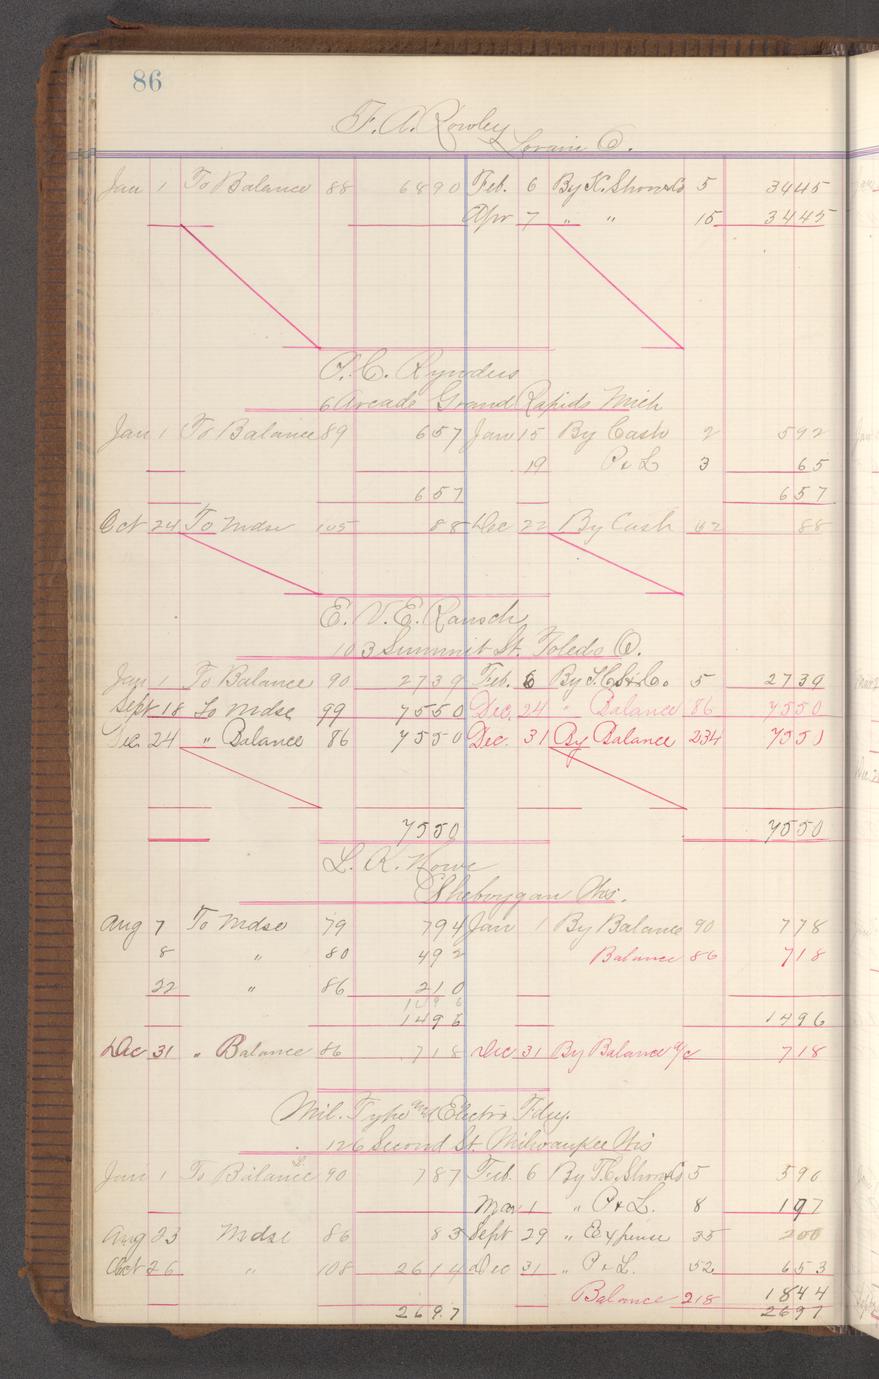 86
F. A. Rowley
Lorain O.
Jan 1 To Balance 88 6890 Feb. 6 By K. Show&Co 5 3445
Apr 7 " " 15 3445
6 Arcade Grand Rapids Mich
Jan 1 To Balance 89 657 Jan 15 By Cash 2 592
19 P & L 3 65
657 657
Oct 24 To Mdse 105 88 Dec 22 By Cash 62 88
E. V. E. Rausch
103 Summit St. Toledo O.
Jan 1 To Balance 90 2739 Feb. 6 By 5 2739
Sept 18 To Mdse 99 7550 Dec. 24 " Balance 86 7550
Dec. 24 " Balance 86 7550 Dec. 31 By Balance 234 7550
7550 7550
L. K. Howe
Sheboygan Wis.
Aug 7 To Mdse 79 794 Jan 1 By Balance 90 778
8 " 80 492 Balance 86 718
22 " 86 210
1496
1496 1496
Dec 31 " Balance 86 718 Dec 31 By Balance a/c 718
Mil. Type and Electro Fdry.
126 Second St. Milwaukee Wis
Jan 1 To Balance 90 787 Feb. 6 By T.C. Show&Co 5 590
Mar 1 " P & L. 8 197
Aug 23 Mdse 86 83 Sept 29 " Expense 35 200
Oct 26 " 108 2614 Dec 31 " P & L. 52 653
Balance 218 1844
2697 2697